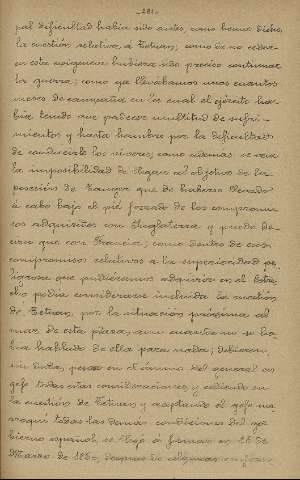 - 281 -
pal dificultad habia sido antes, como hemos dicho,
la cuestión relativa á Tetuan; como de no ceder
en esta exigencia hubiera sido preciso continuar
la guerra; como ya llevábamos unos cuantos
meses de campaña en los cual el ejército ha-
bia tenido que padecer multitud de sufri-
mientos y hasta hambre por la dificultad
de conducirle los víveres; como ademas se veia
la imposibilidad de llegar al objetivo de la
posesión de Tanger que de haberse llevado
á cabo bajo el pié forzado de los compromi-
sos adquiridos con Inglaterra y puede de-
cirse que con Francia; como dentro de esos
compromisos relativos a la superioridad pe-
ligrosa que pudiéramos adquirir en el Estre-
cho podia considerarse incluida la cuestión
de Tetuan, por la situación próxima al
mar de esta plaza, aun cuando no se ha-
bia hablado de ella para nada; debieron,
sin duda, pesar en el ánimo del general en
gefe todas estas consideraciones y cediendo en
la cuestión de Tetuan y aceptando el gefe ma-
rroquí todas las demás condiciones del go-
bierno español, se llegó á firmar en 26 de
Marzo de 1860, después de algunas